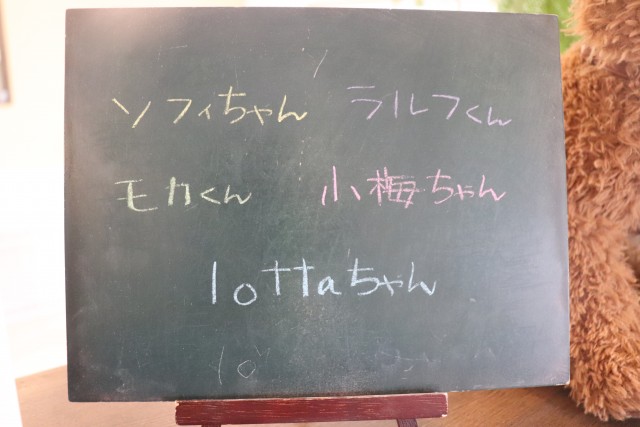 ソフィちゃん ラルフくん
モカくん 小梅ちゃん
lottaちゃん